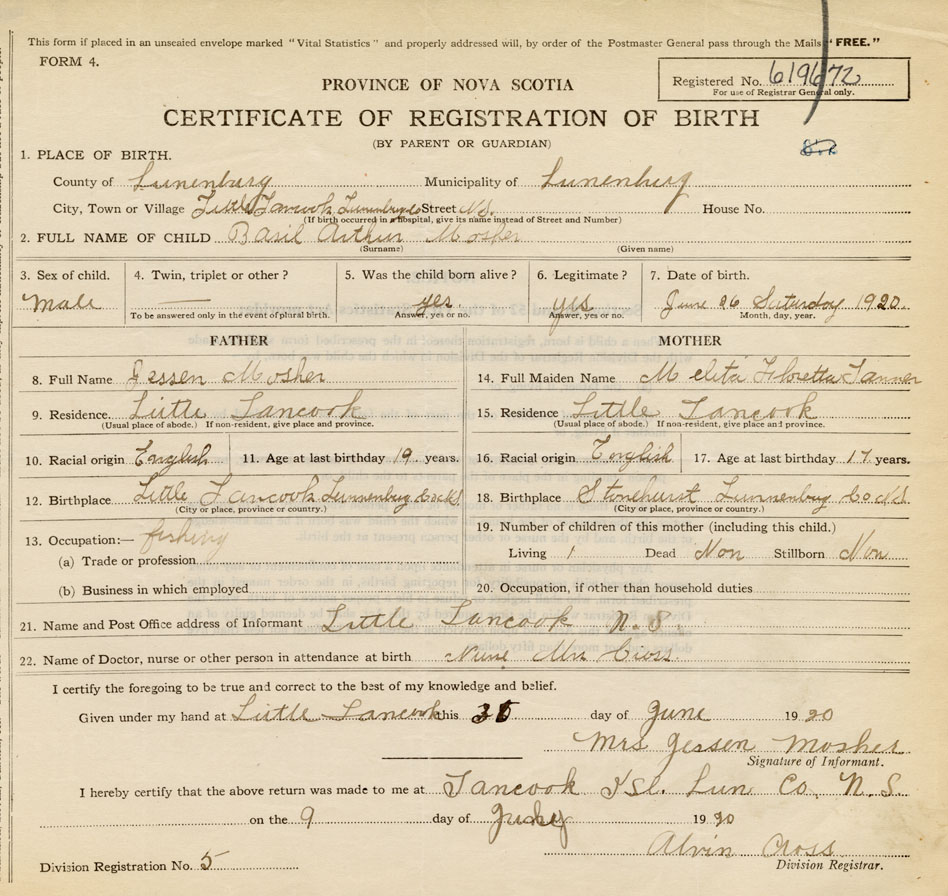 This form if placed in an unsealed envelope marked "Vital Statistics" and properly addressed will, by order of the Postmaster General pass through the Mails "FREE."
FORM 4.
Registered No. 619672
For use of Registrar General only.
PROVINCE OF NOVA SCOTIA
CERTIFICATE OF REGISTRATION OF BIRTH
(BY PARENT OR GUARDIAN)
1. PLACE OF BIRTH.
County of Lunenburg Municipality of Lunenburg
City, Town or Village Little Tancook Lunenburg Co Street N.S. House No.
(If birth occurred in a hospital, give its name instead of Street and Number)
2. FULL NAME OF CHILD Basil Arthur Mosher
(Surname) (Given name)
3. Sex of child. 4. Twin, triplet or other? 5. Was the child born alive? 6. Legitimate? 7. Date of birth.
Male — yes yes June 26 Saturday 1920
To be answered only in the event of plural birth. Answer, yes or no. Answer, yes or no. Month, day, year.
FATHER MOTHER
8. Full Name Jessen Mosher 14. Full Maiden Name Melita Floretta Tanner
9. Residence. Little Tancook 15. Residence Little Tancook
(Usual place of abode.) If non-resident, give place and province. (Usual place of abode.) If non-resident, give place and province.
10. Racial origin English 11. Age at last birthday 19 years. 16. Racial origin English 17. Age at last birthday 17 years.
12. Birthplace Little Tancook Lunnenburg Co N.S. 18. Birthplace Stonehurst Lunnenburg Co N.S.
(City or place, province or country.) (City or place, province or country.)
13. Occupation:— fishing 19. Number of children of this mother (including this child.)
(a) Trade or profession Living 1 Dead Non Stillborn Non
(b) Business in which employed 20. Occupation, if other than household duties
21. Name and Post Office address of Informant Little Tancook N.S.
22. Name of Doctor, nurse or other person in attendance at birth Nurse Mrs Cross
I certify the foregoing to be true and correct to the best of my knowledge and belief.
Given under my hand at Little Tancook this day of June 1920
Mrs Jessen Mosher
Signature of Informant.
I hereby certify that the above return was made to me at Tancook Isl. Lun Co. N.S.
on the 9 day of July 1920
Alvin Cross
Division Registration No. 5 Division Registrar.